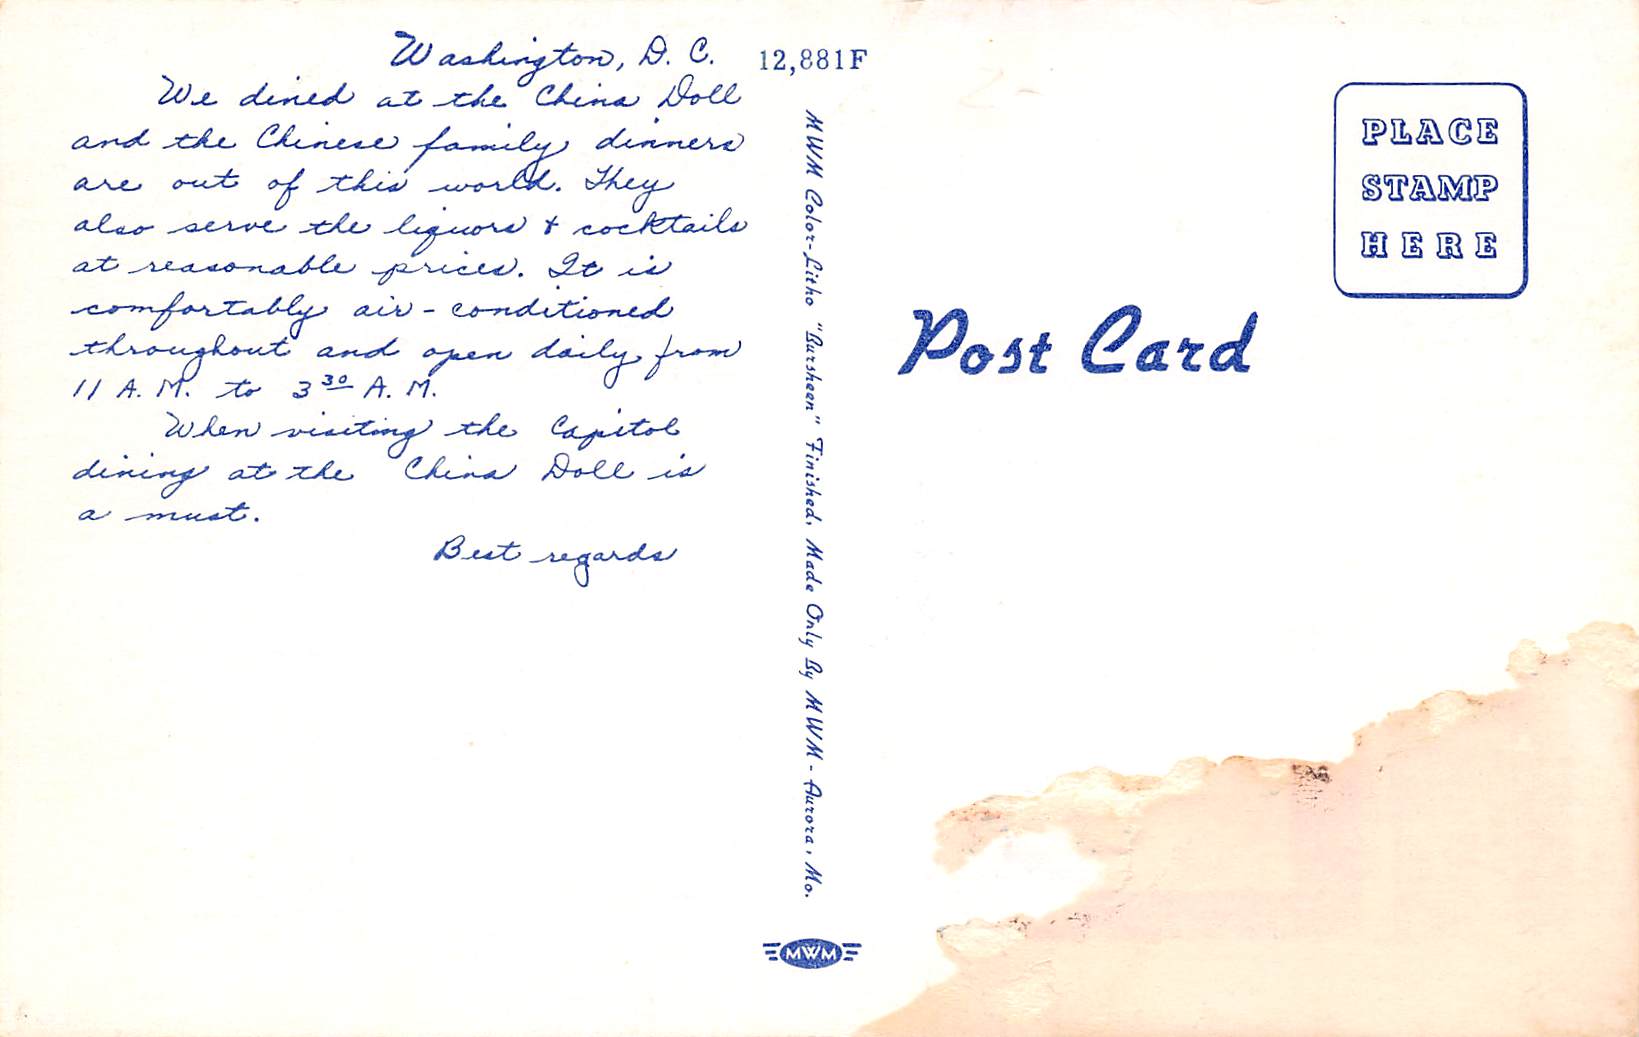 Washington, D. C.
We dined at the China Doll
and the Chinese family dinners
are out of this world. They
also serve the liquors & cocktails
at reasonable prices. It is
comfortably air-conditioned
throughout and open daily from
11 A. M. to 3 30 A. M.
When visiting the Capitol
dining at the China Doll is
a must.
Best regards
12,881F
MWM Color-Litho "Bursheen" Finished, Made Only By MWM - Aurora, Mo.
MWM
Post Card
PLACE
STAMP
HERE